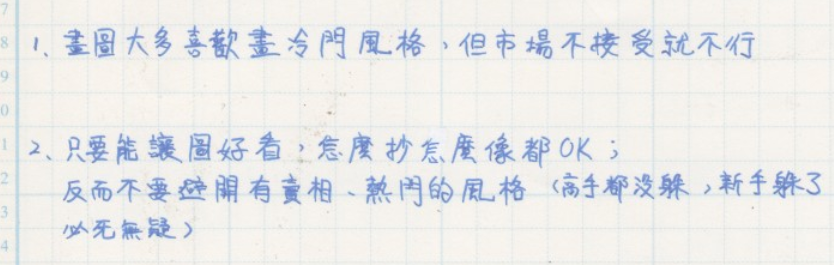 7
8
9
0
1
2
3
4
1、畫圖大多喜歡畫冷門風格，但市場不接受就不行
2、只要能讓圖好看，怎麼抄怎麼像都OK；
反而不要避開有賣相、熱門的風格（高手都沒躲，新手躲了
必死無疑）